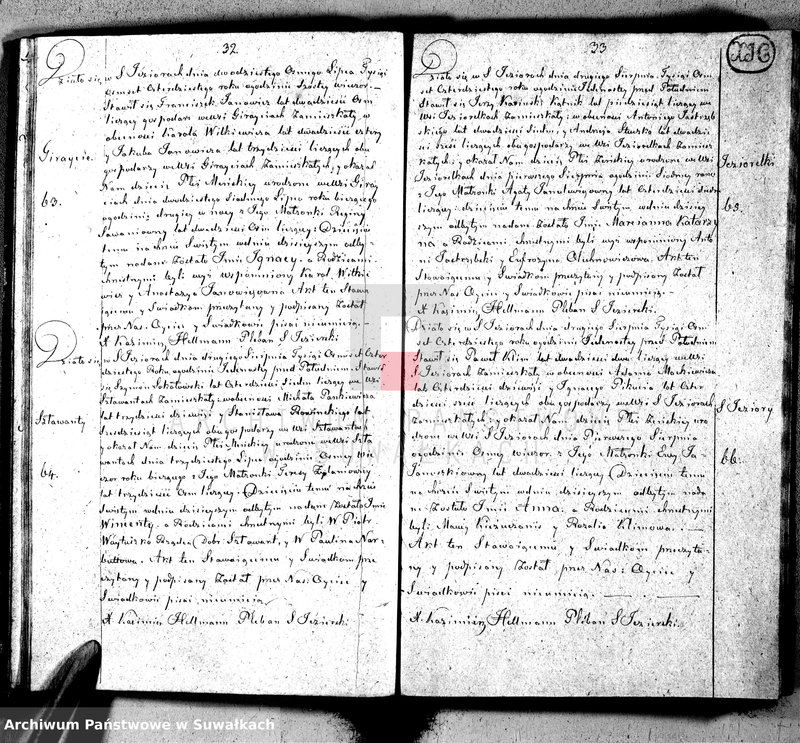 32.
Działo się w S Jeziorach dnia dwudziestego Osmego Lipca Tysiąc
Osmset Czterdziestego roku o godzinie szostej wieczor.
Stawił się Franciszek Janowicz lat dwadzieścia Osm
liczący gospodarz we wsi Giraycie zamieszkały, w
obecności Karola Witkiewicza lat dwadzieścia cztery
y Jakuba Janowicza lat trzydzieści liczących obu
gospodarzy we wsi Girayciach zamieszkałych; y okazał
Nam dziecię Płci Męskiej urodzone we wsi Giray
ciach dnia dwudziestego Siodmego Lipca roku bieżącego
o godzinie drugiej w nocy z Jego Małżonki Reginy
lat dwadzieścia Osm liczącej: Dziecięciu
temu na Chrzcie Swiętym w dniu dzisieyszym odby-
tym nadane zostało Imie Ignacy. a Rodzicami
chrzestnymi byli wyż wspomniony Karol Witkie
wicz y Anastazya Janowiczowna Akt ten Stawa
iącemu y Swiadkom przeczytany y podpisany został
przez Nas Oyciec y Swiadkowie pisać nieumieią.
X Kazimierz Hillmann Pleban S Jezierski
Giraycie.
63.
Działo się w S Jeziorach dnia drugiego Sierpnia Tysiąc Osmset Czter
dziestego Roku o godzinie Jedenastey przed Południem Stawił
się Szymon Sokołowski lat Czterdzieści Siedm liczący we wsi
Sztawantach Zamieszkały; w obecności Michała Pankiewicza
lat trzydzieści dziewięć y Stanisława Rosińskiego lat
liczących obu gospodarzy we wsi Sztawantach
y okazał Nam dziecię Płci Męskiej urodzone we wsi Szta
wantach dnia trzydziestego Lipca o godzinie Osmey Wie
czor roku bieżącego z Jego Małżonki
lat trzydzieści Osm liczącey: Dziecięciu temu na Chrzcie
Swiętym w dniu dzisieyszym odbytym nadane Zostało Imie
Wincenty. a Rodzicami chrzestnymi byli W Piotr
Rządca Dobr Sztawant, y W Paulina Nar-
buttowa. Akt ten Stawaiącemu y Swiadkom prze
czytany y podpisany Został przez Nas: Oyciec y
Swiadkowie pisać nieumieią
X Kazimierz Hillmann Pleban S Jezierski
Sztawanty
64.
33
Działo się w S Jeziorach dnia drugiego Sierpnia Tysiąc Osm-
set Czterdziestego roku o godzinie Jedenastey przed Południem
Stawił się Jerzy Kątnik lat pięćdziesiąt liczący we
Wsi Jeziorelkach Zamieszkały; w obecności Antoniego Jastrzęb
skiego lat dwadzieścia Siedm, y Andrzeja lat dwadzie
ścia sześć liczących obu gospodarzy we wsi Jeziorelkach Zamiesz
kałych; y okazał Nam dziecię Płci Zeńskiey urodzone we Wsi
Jeziorelkach dnia pierwszego Sierpnia o godzinie Siodmey rano
z Jego Małżonki Agaty lat Czterdzieści Siedm
liczącey: dziecięciu temu na Chrzcie Swiętym w dniu dzisiey
szym odbytym nadane Zostało Imie: Marcianna Katarzy
na a Rodzicami chrzestnymi byli wyż wspomniony Anto
ni Jastrzębski y Eufrozyna Akt ten
Stawaiącemu y Swiadkom przeczytany y podpisany Został
przez Nas Oyciec y Swiadkowie pisać nieumieią.
X Kazimierz Hillmann Pleban S Jezierski.
Jeziorelki
65.
Działo się w S Jeziorach dnia drugiego Sierpnia Tysiąc Osm-
set Czterdziestego roku o godzinie Jedenastey przed Południem
Stawił się Paweł Klim lat dwadzieścia dwa liczący we wsi
S Jeziorach Zamieszkały w obecności Adama Mackiewicza
lat Czterdzieści dziewięć y Ignacego lat Czter
dzieści sześć liczących obu gospodarzy we wsi S Jeziorach
Zamieszkałych: y okazał Nam dziecię Płci Zeńskiey uro
dzone we wsi S Jeziorach dnia Pierwszego Sierpnia
o godzinie Osmey wieczor. z Jego Małżonki Ewy Ja
lat dwadzieścia liczącey; Dziecięciu temu
na Chrzcie Swiętym w dniu dzisieyszym odbytym nada
ne Zostało Imie Anna. a Rodzicami chrzestnymi
byli: y Rozalia Klimowa.
Akt ten Stawaiącemu y Swiadkom przeczyta-
ny y podpisany Został przez Nas: Oyciec y
Swiadkowie pisać nieumieią.
X Kazimierz Hillmann Pleban S Jezierski
S Jeziory
66.
Archiwum Państwowe w Suwałkach